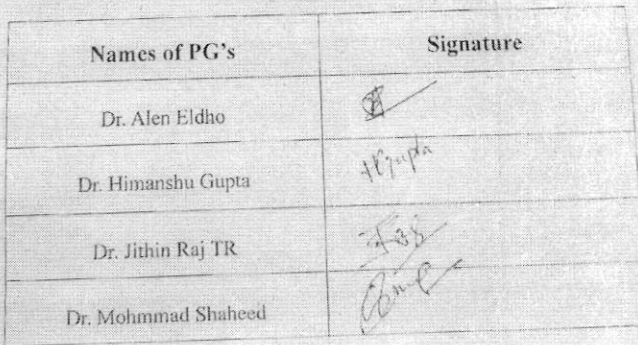 Names of PG's Signature
Dr. Alen Eldho
Dr. Himanshu Gupta HGupta
Dr. Jithin Raj TR
Dr. Mohmmad Shaheed